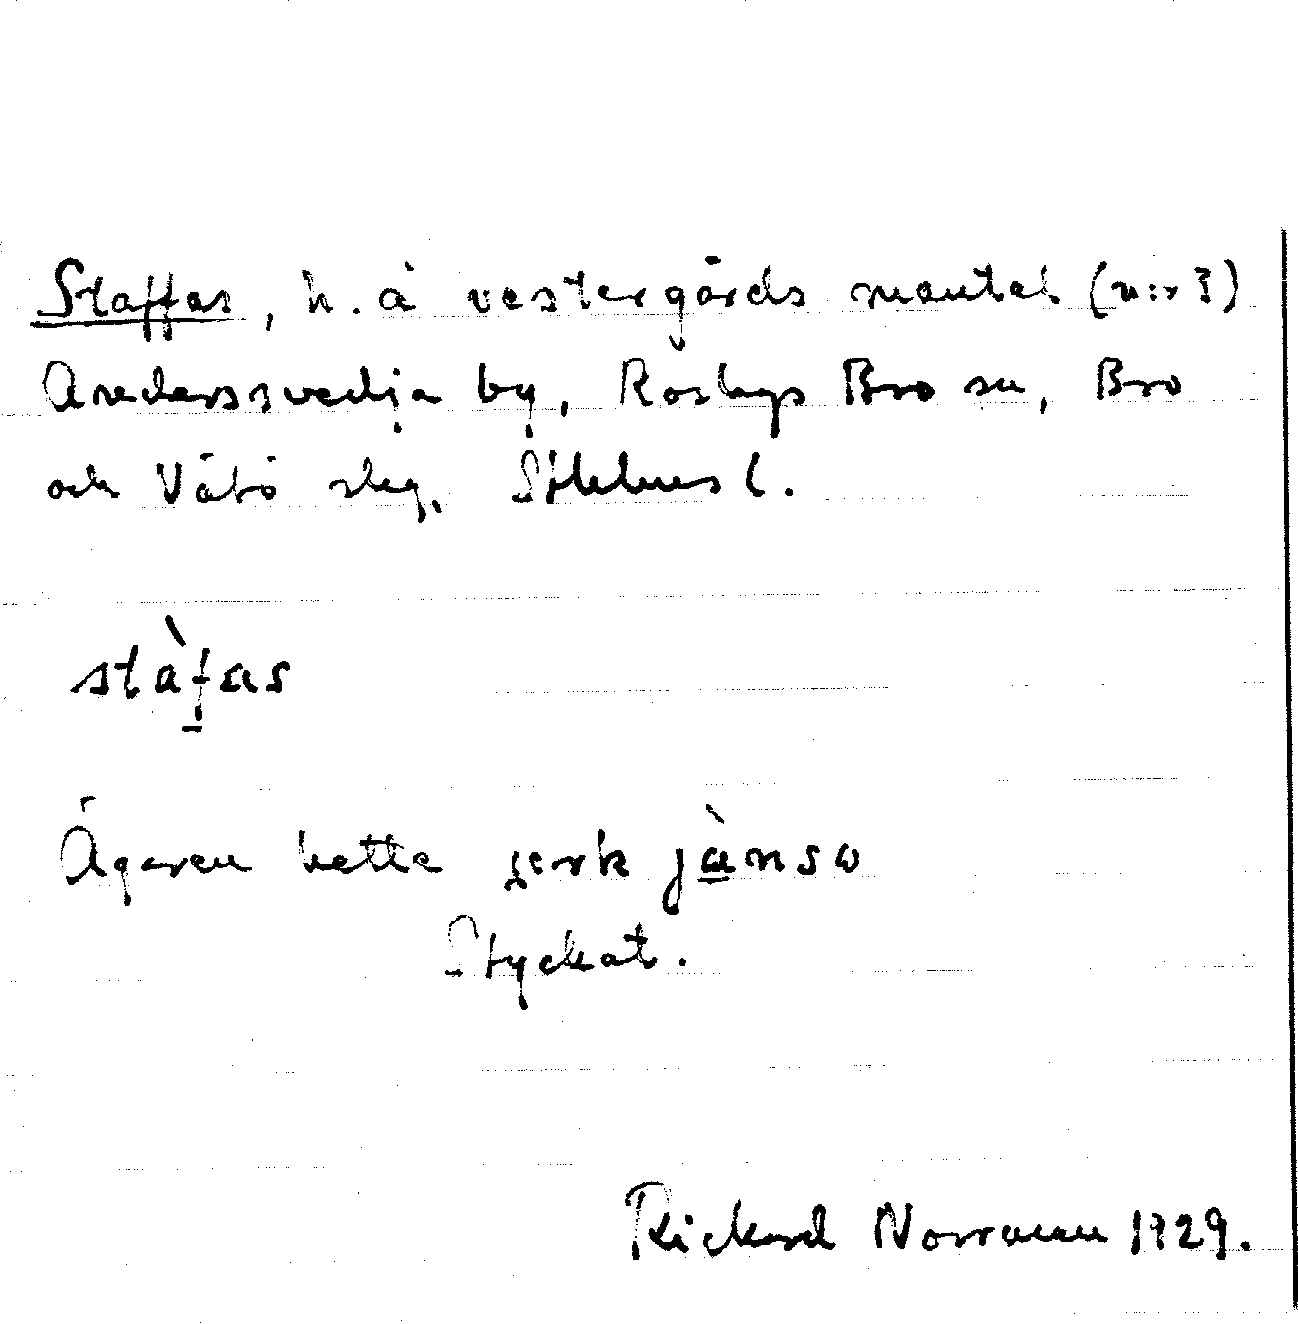 Staffas, h. å västergårds mantal (n:r 3)
Anderssvedja by, Roslags Bro sn, Bro
och Vätö skg. Sthlms l.
stàfas
Ägaren hette jerk jànsω
Styckat.
Rickard Norrman 1929.